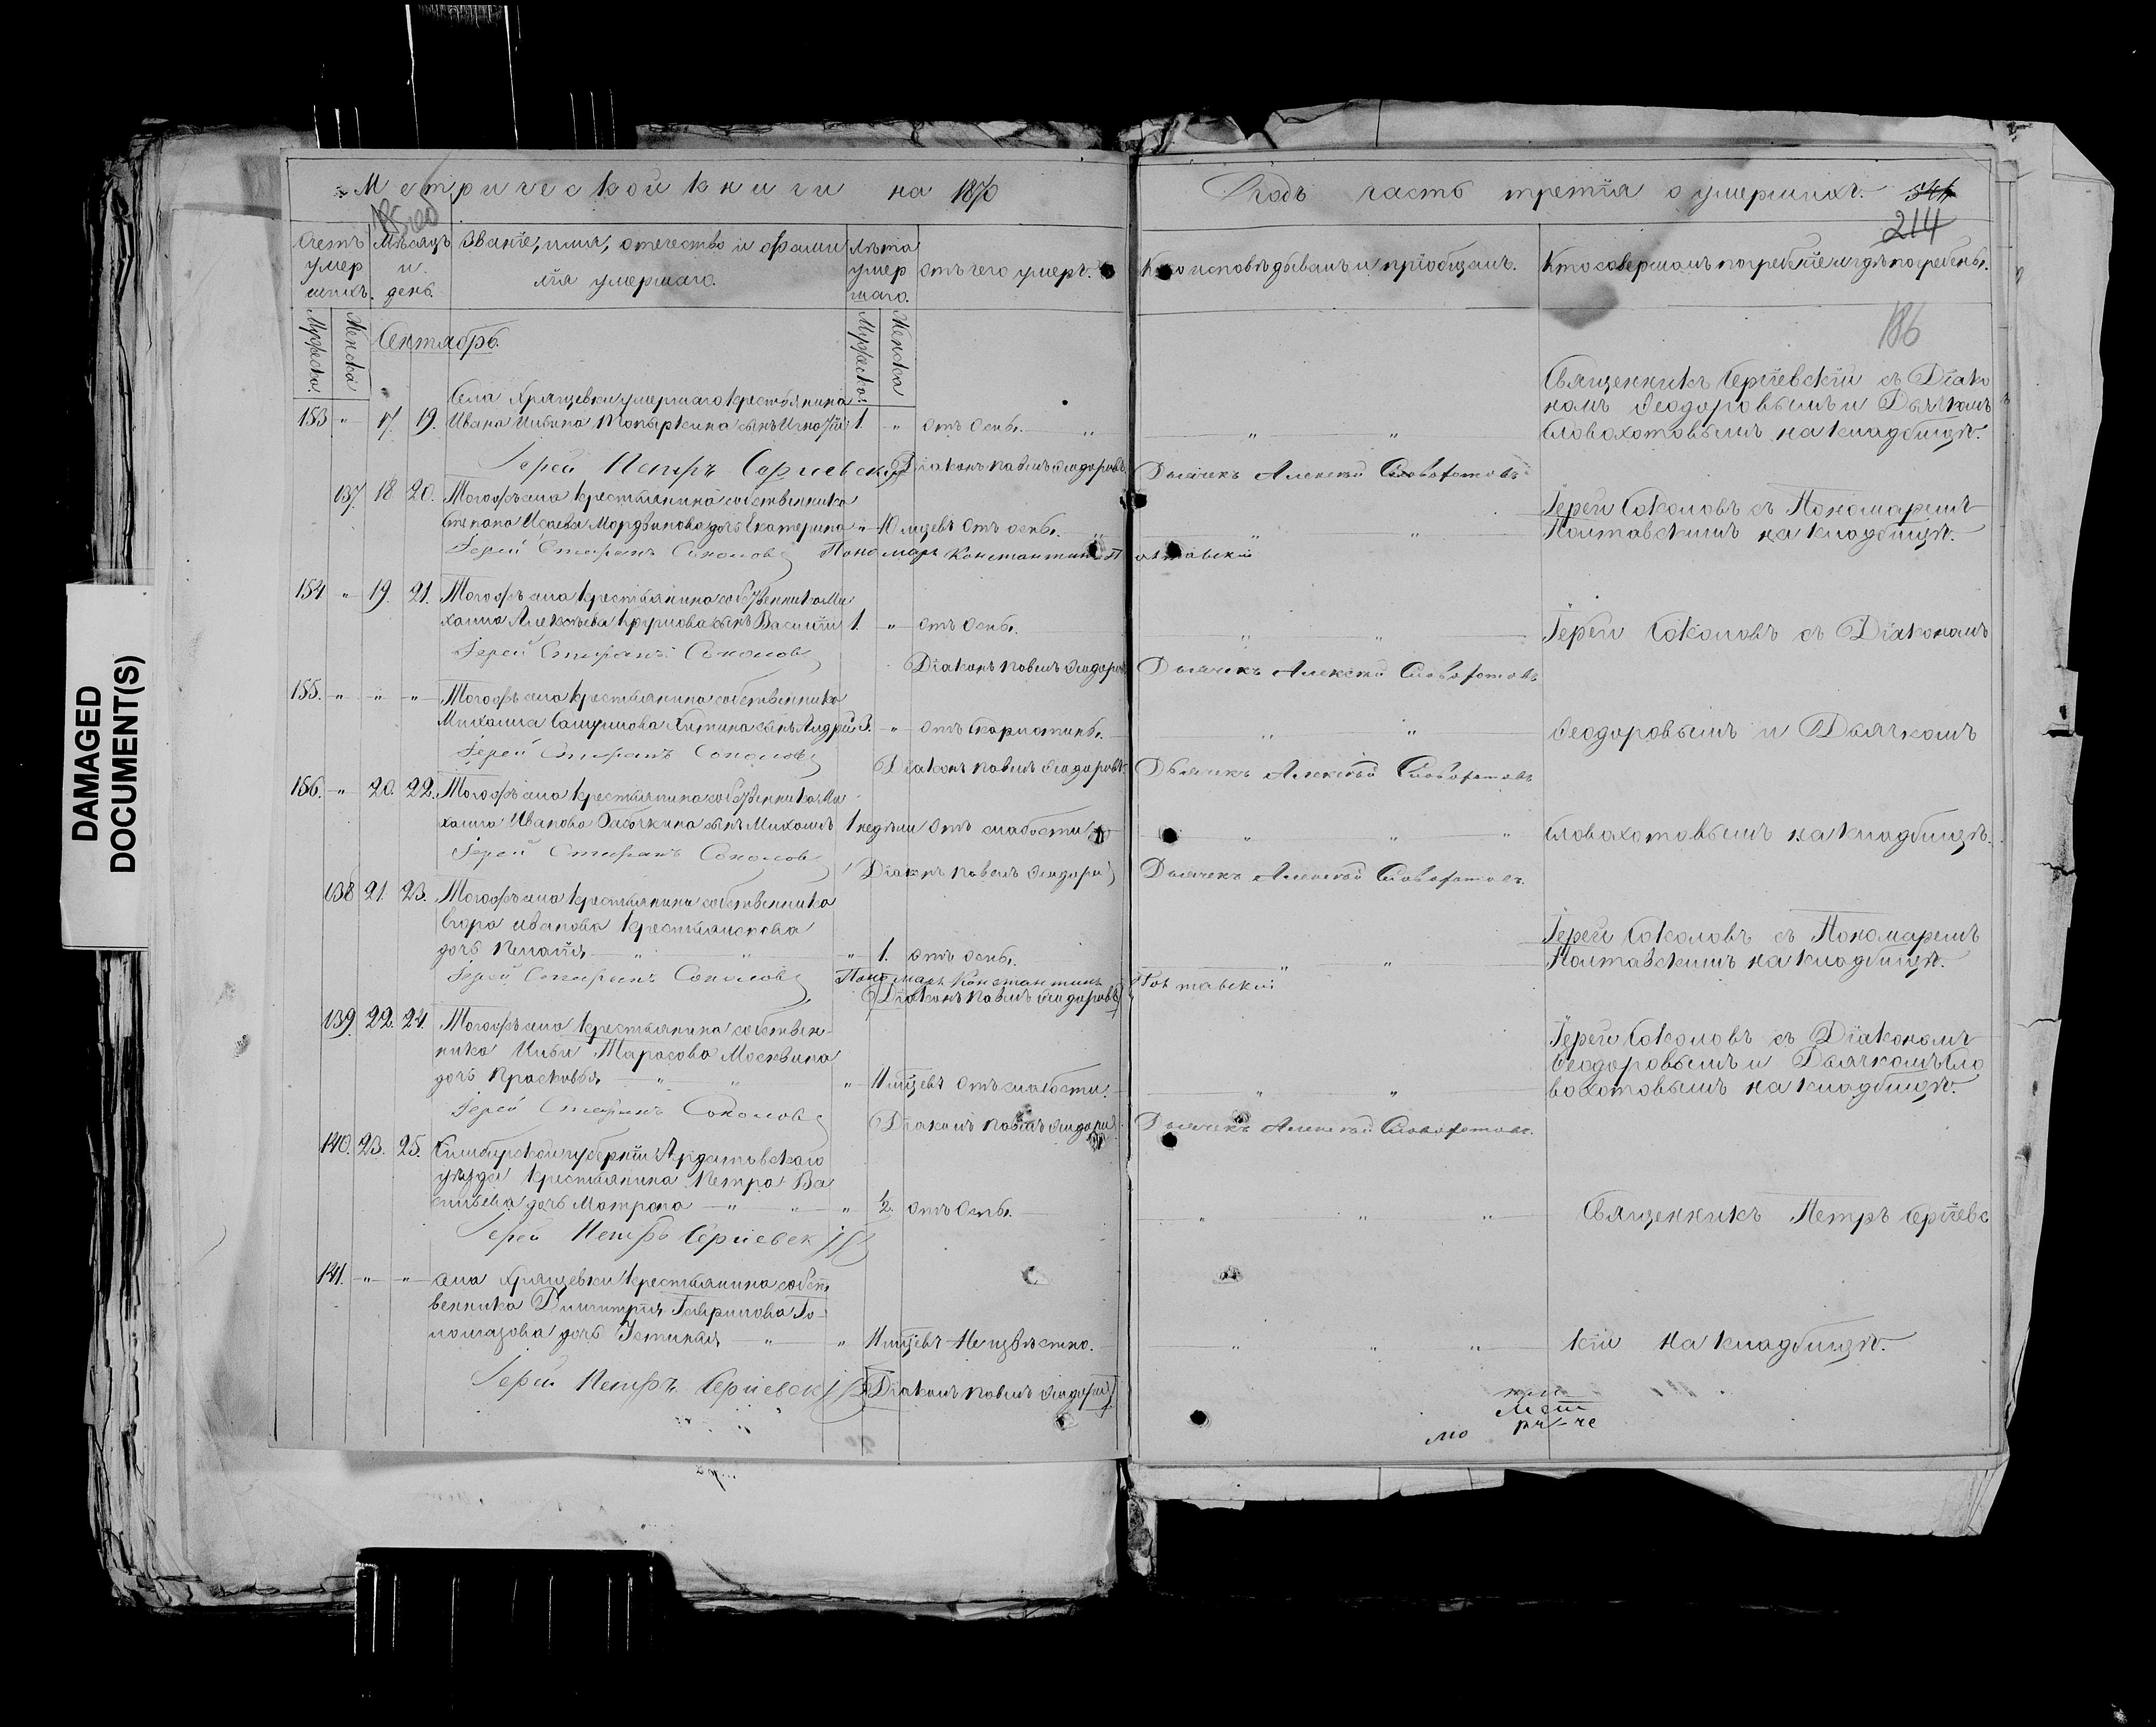 DAMAGED
DOCUMENT(S)
Метрической книги на 1870
Годъ часть третїя о умершихъ.
214
186
Счетъ умер шихъ.
Мѣсяцъ и день.
Званїе, имя, отечество и фами лїя умершаго.
Лѣта умер шаго.
отъ чего умеръ.
Кто исповѣдывалъ и прїобщалъ.
Кто совершалъ погребенїе и гдѣ погребены.
Мужска.
Женска
Сентябрь.
Мужска.
Женска
Села Хрящевки умершаго крестьянина
153 " 17. 19. Ивана сынъ 1. " отъ оспы. " " "
Священникъ Сергїевскїй съ Дїако
номъ Ѳеодоровымъ и Дьячкомъ
Словохотовымъ на кладбищѣ.
Іерей Петръ Сергиевскій Дїаконъ Павелъ Ѳеодоровъ Дьячекъ Алексѣй Словохотовъ
137. 18 20. Тогожъ села крестьянина собственника
Степана Исаева Мордвинова дочь Екатерина " 10 мцевъ отъ оспы. " " "
Їерей Соколовъ съ Пономаремъ
Полтавскимъ на кладбищѣ.
Іерей Стефанъ Соколовъ Пономарь Константинъ Полтавскій
154 " 19. 21. Тогожъ села крестьянина собственника Ми
хаила Алексѣева сынъ Василїй 1. " отъ оспы. " "
Їерей Соколовъ съ Дїакономъ
Іерей Стефанъ Соколовъ
Дїаконъ Павелъ Ѳеодоровъ Дьячекъ Алексѣй Словохотовъ
155. " " " Тогожъ села крестьянина собственника
Михаила сынъ Андрей 3. " отъ скарлотины. " "
Ѳеодоровымъ и Дьячкомъ
Іерей Стефанъ Соколовъ
Дїаконъ Павелъ Ѳеодоровъ Дьячекъ Алексѣй Словохотовъ
156. " 20. 22. Тогожъ села крестьянина собственника Ми
хаила Иванова Бабочкина сынъ Михаилъ 1 недѣли отъ слабости " " "
Словохотовымъ на кладбищѣ.
Іерей Стефанъ Соколовъ
Дїаконъ Павелъ Ѳеодоров Дьячекъ Алексѣй Словохотовъ.
138 21. 23. Тогожъ села крестьянина собственника
Егора Иванова
дочь Пелагїя " " " 1. отъ оспы. " "
Їерей Соколовъ съ Пономаремъ
Полтавскимъ на кладбищѣ.
Іерей Стефанъ Соколовъ Пономарь Константинъ Полтавскій
Дїаконъ Павелъ Ѳеодоровъ
139. 22. 24. Тогожъ села крестьянина собствен-
ника Ильи Тарасова Москвина
дочь Прасковья " " " 11 мцевъ отъ слабости. " "
Їерей Соколовъ съ Дїакономъ
Ѳеодоровымъ и Дьячкомъ Сло
вохотовымъ на кладбищѣ.
Іерей Стефанъ Соколовъ
Дїаконъ Павелъ Ѳеодоров Дьячекъ Алексѣй Словохотовъ.
140. 23. 25. Симбирской губернїи Ардатовскаго
уѣзда крестьянина Петра Ва
сильева дочь Матрона " " " 1/2. отъ оспы. " " "
Священникъ Петръ Сергїевс
Іерей Петръ Сергиевскій
141. " " села Хрящевки крестьянина собст
венника Димитрїя Гаврилова
дочь Устинья " " 11 мцевъ Неизвѣстно. " " "
кїй на кладбищѣ.
Іерей Петръ Сергиевскій Дїаконъ Павелъ Ѳеодоров